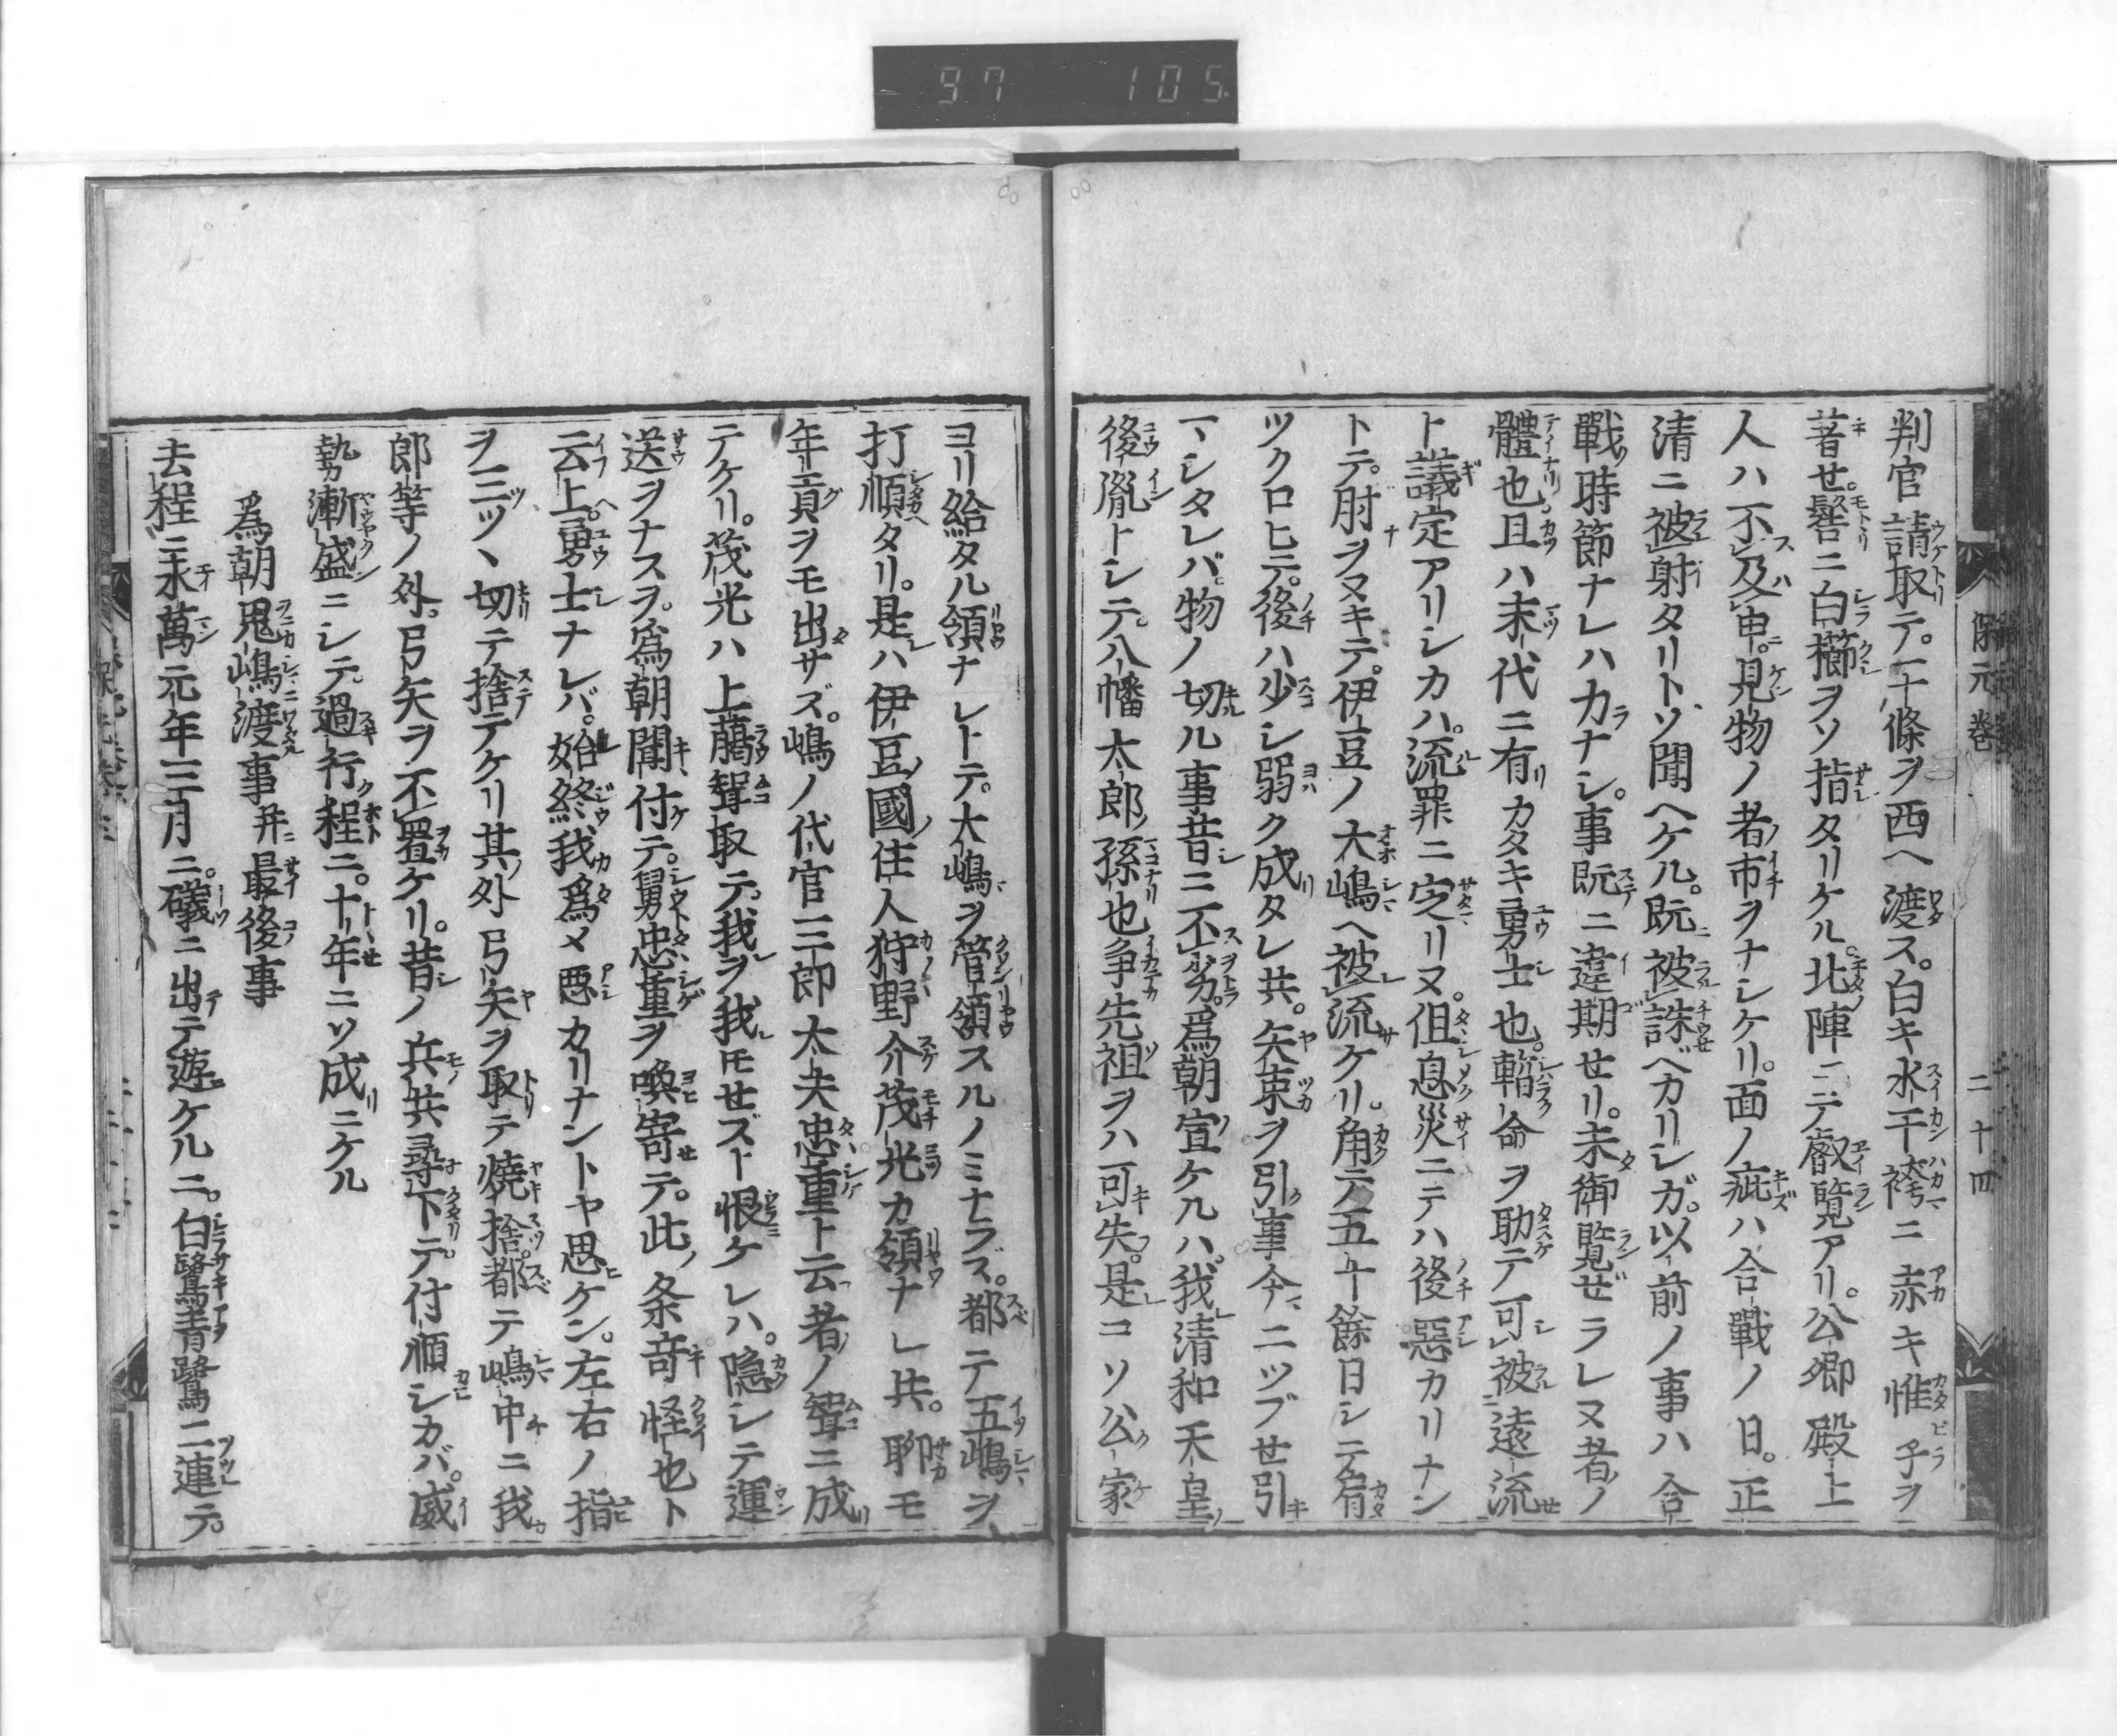 97 105
保元巻三 二十四
判官請取テ。二條ヲ西ヘ渡ス。白キ水干袴ニ赤キ帷子ヲ
著セ。髻ニ白櫛ヲソ指タリケル。北陣ニテ叡覽アリ。公卿殿上
人ハ不及申。見物ノ者市ヲナシケリ。面ノ疵ハ合戰ノ日。正
清ニ被射タリトソ聞ヘケル。既被誅ベカリシガ。以前ノ事ハ合
戰時節ナレハ力ナシ。事既ニ違期セリ。未御覽ゼラレヌ者ノ
體也且ハ末代ニ有カタキ勇士也。暫命ヲ助テ可被遠流
ト議定アリシカハ。流罪ニ定リヌ。但息災ニテハ後惡カリナン
トテ。肘ヲヌキテ。伊豆ノ大嶋ヘ被流ケリ。角テ五十餘日シテ肩
ツクロヒテ。後ハ少シ弱ク成タレ共。矢束ヲ引事今ニツブセ引
マシタレバ。物ノ切ル事昔ニ不劣。爲朝宣ケルハ。我清和天皇ノ
後胤トシテ。八幡太郎孫也争先祖ヲハ可失。是コソ公家
ヨリ給タル領ナレトテ。大嶋ヲ管領スルノミナラズ。都テ五嶋ヲ
打順タリ。是ハ伊豆國住人狩野介茂光カ領ナレ共。聊モ
年貢ヲモ出サズ。嶋ノ代官三郎太夫忠重ト云者ノ聟ニ成
テケリ。茂光ハ上﨟聟取テ。我ヲ我モセズト恨ケレハ。隠シテ運
送ヲナスヲ。爲朝聞付テ。舅忠重ヲ喚寄テ。此条奇怪也ト
云上。勇士ナレバ。始終我爲メ惡カリナントヤ思ケン。左右ノ指
ヲ三ツヽ切テ捨テケリ其外弓矢ヲ取テ燒捨都テ嶋中ニ我
郎等ノ外。弓矢ヲ不置ケリ。昔ノ兵共尋下テ。付順シカバ。威
勢漸盛ニシテ過行程ニ。十年ニソ成ニケル
爲朝鬼嶋渡事并最後事
去程ニ永萬元年三月ニ。礒ニ出テ遊ケルニ。白鷺青鷺二連テ。